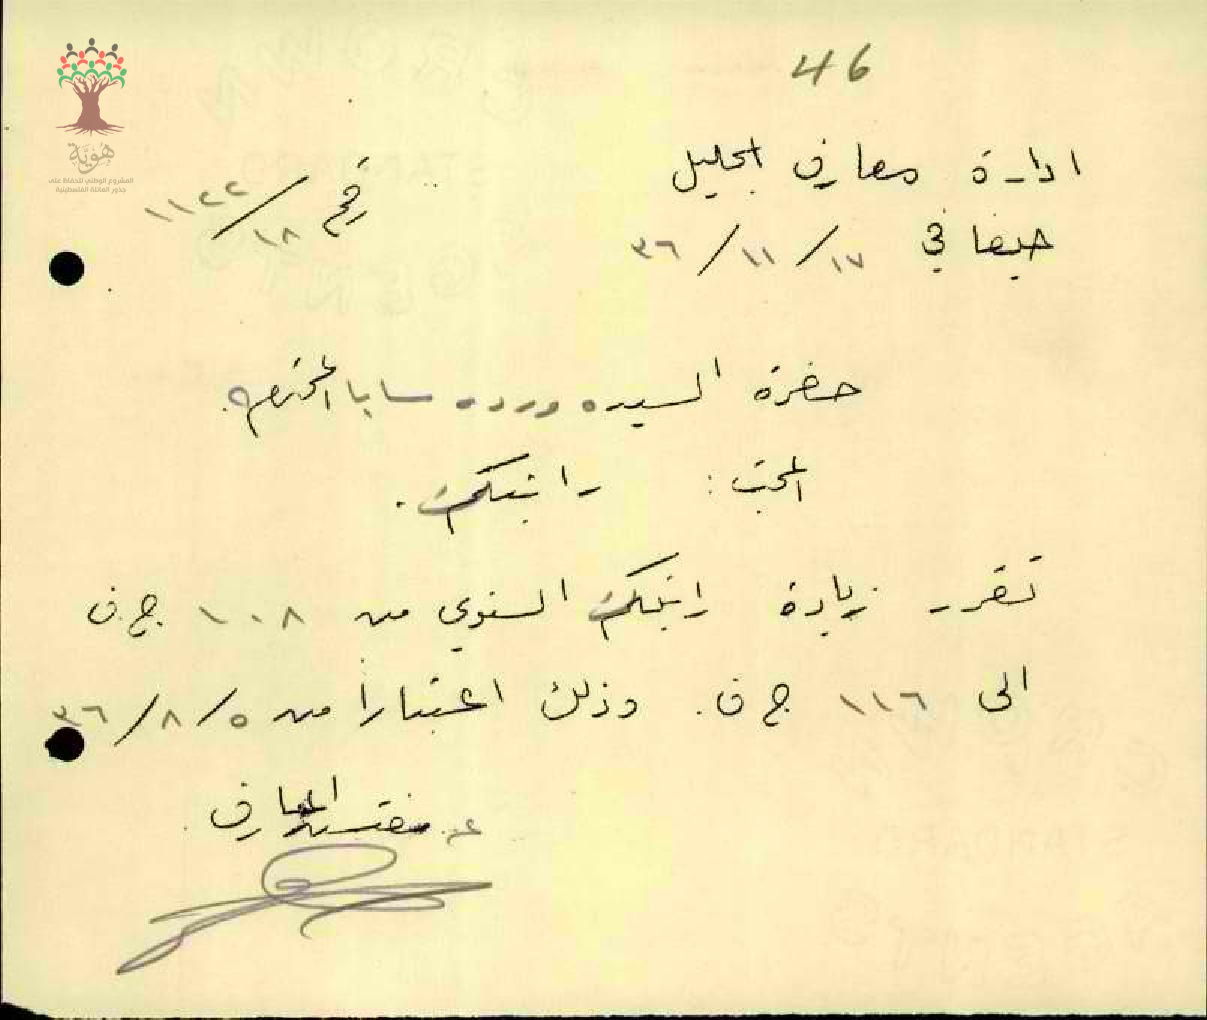 46
هُوِيَّة
المشروع الوطني للحفاظ على
جذور العائلة الفلسطينية
ادارة معارف الجليل
رقم ١٨/١١٢٢
حيفا في ١٧/١١/٣٦
حضرة السيده ورده سابا المحترمه
المبحث: راتبكِ.
تقرر زيادة راتبك السنوي من ١٠٨ ج.ف
الى ١١٦ ج ف. وذلك اعتباراً من ٥/٨/٣٦
عن مفتش المعارف